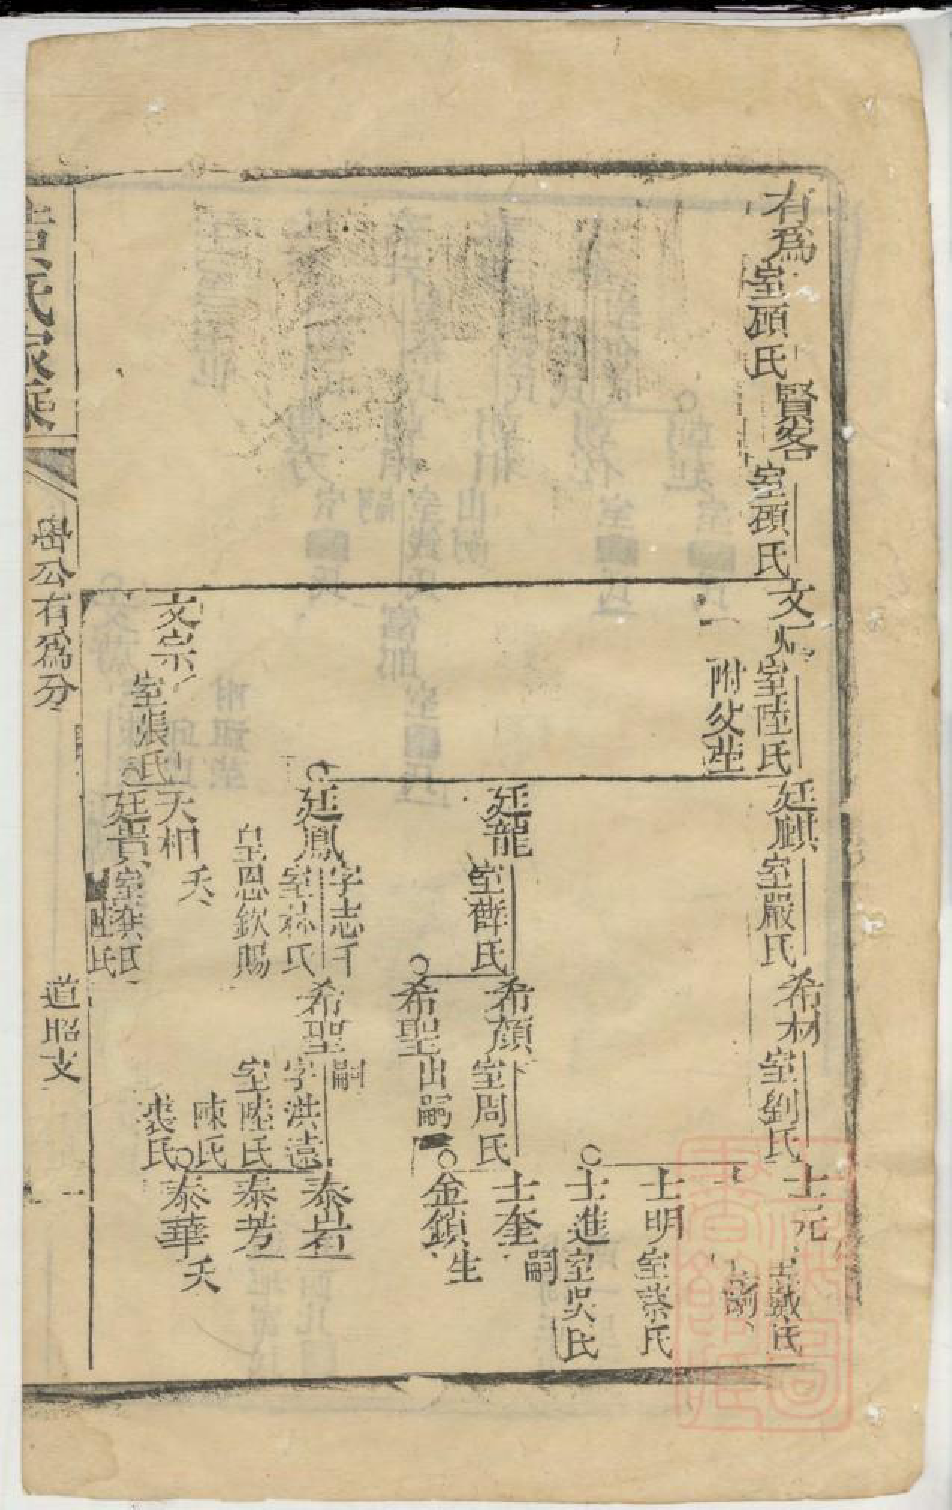 有爲 室顧氏
賢客 室顧氏
文 室陸氏
附父塋
廷麒 室嚴氏
希材 室劉氏
士元 室戴氏
嗣
士明 室蔡氏
士進 室吳氏
廷龍 室薛氏
希顏 室周氏
士奎 嗣
金鎖 生
希聖 出嗣
廷鳳 字志千
室林氏
皇恩欽賜
希聖 嗣
字洪遠
室陸氏
陳氏
裘氏
泰岩
泰芳
泰華 夭
文宗 室張氏
天相 夭
廷貴 室龔氏
氏
氏家乘
公有爲分
道昭支